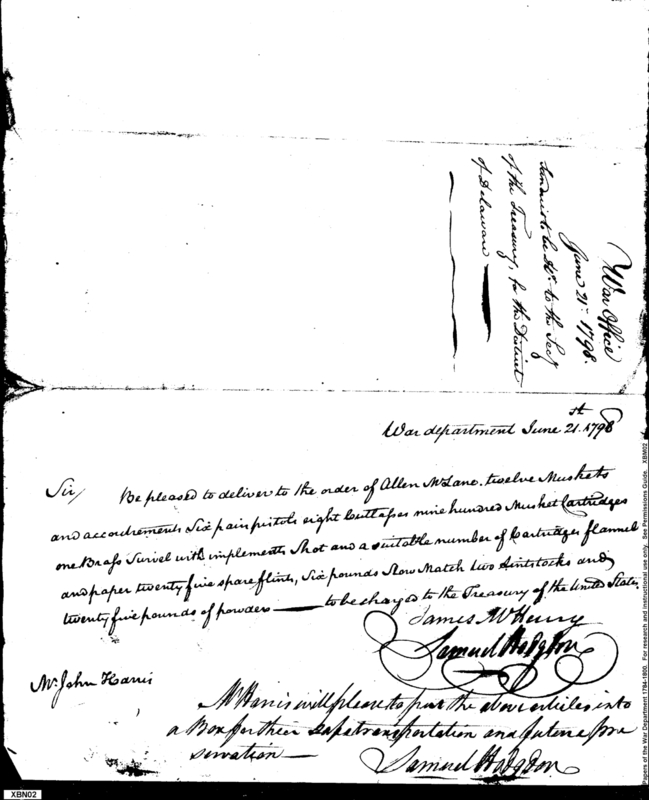 War Office
June 21st 1798.
Sundries to be Dd. to the Secy
of the Treasury, for the District
of Delaware
War department June 21.st 1798
Sir/ Be pleased to deliver to the order of Allen McLane. twelve Muskets
and accoutrements Six pair pistols eight Cuttlasses nine hundred Musket Cartridges
one Brass Swivel with implements Shot and a suitable number of Cartridges flannel
and paper twenty five spare flints, Six pounds Slow Match two lintstocks and
twenty five pounds of powder to be charged to the Treasury of the United States.
James McHenry
Samuel Hodgdon
Mr. John Harris
Mr Harris will please to put the above articles into
a Box for their safe transportation and future pre
servation
Samuel Hodgdon
XBN02
Papers of the War Department 1784-1800. For research and instructional use only. See Permissions Guide. XBN02